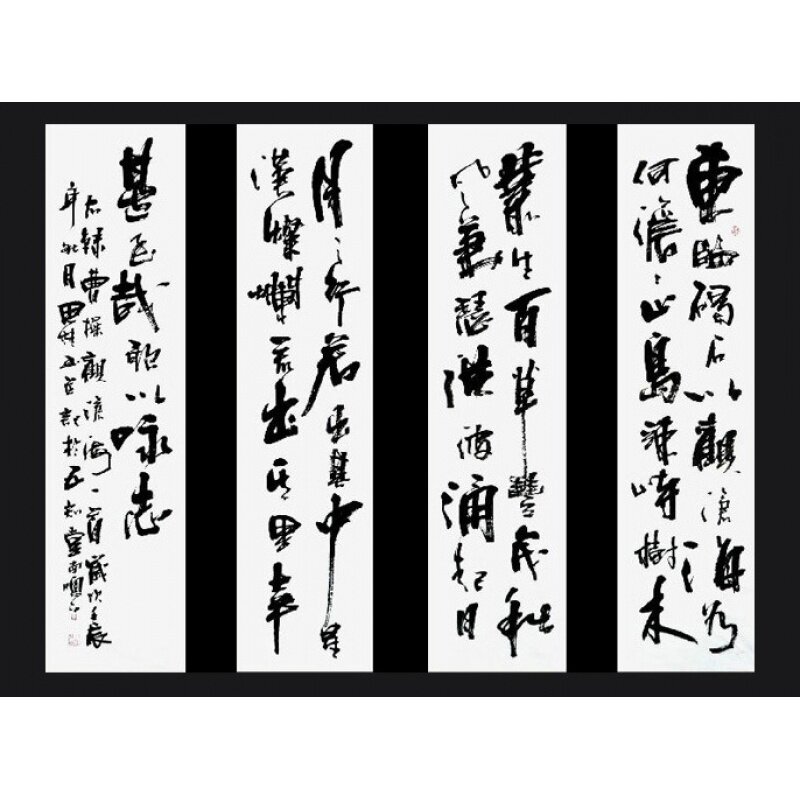 東臨碣石以觀滄海水
何澹澹山島竦峙樹木
叢生百草豐茂秋
風蕭瑟洪波涌起日
月之行若出其中星
漢燦爛若出其里幸
甚至哉以咏志
右錄曹操觀滄海一首歲次壬辰
年秋月於五知堂南窗